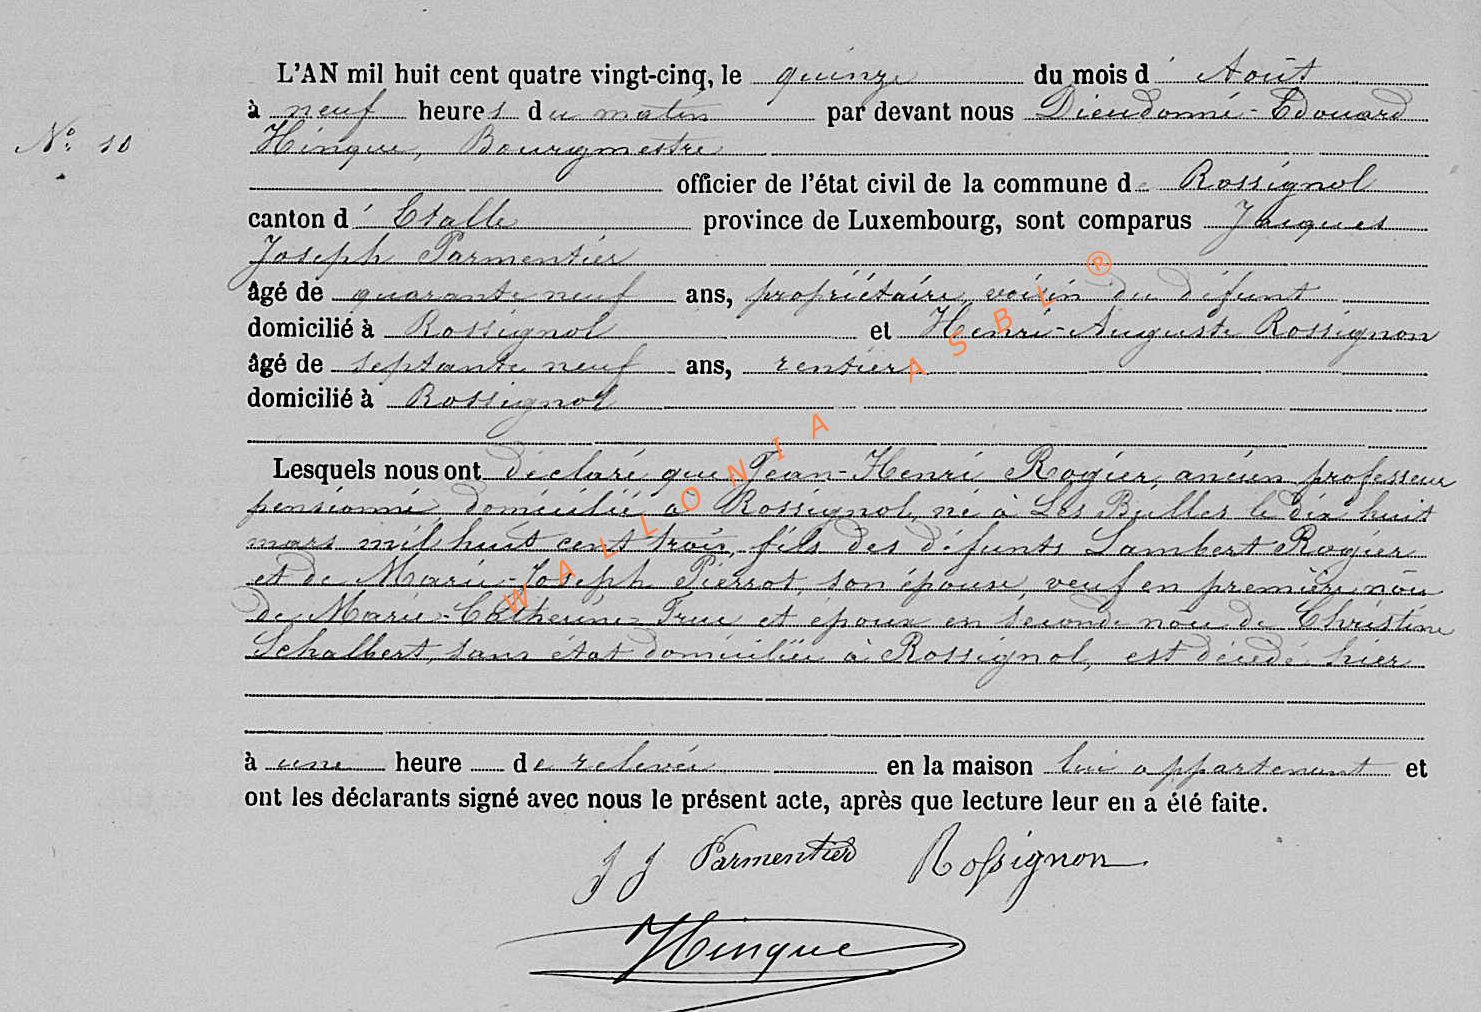 L'AN mil huit cent quatre vingt-cinq, le quinze du mois d' Août
à neuf heures du matin par devant nous Dieudonné-Edouard
N° 10
Hinque, Bourgmestre
officier de l'état civil de la commune de Rossignol
canton d' Etalle province de Luxembourg, sont comparus Jacques
Joseph Parmentier
âgé de quarante neuf ans, propriétaire, voisin du défunt
domicilié à Rossignol et Henri-Auguste Rossignon
âgé de septante neuf ans, rentier
domicilié à Rossignol
Lesquels nous ont déclaré que Jean-Henri Rogier, ancien professeur
pensionné domicilié à Rossignol, né à Les Bulles le dix huit
mars mil huit cent trois, fils des défunts Lambert Rogier
et de Marie-Joseph Pierrot, son épouse, veuf en première nôce
de Marie-Catherine True et époux en seconde noce de Christine
Schalbert, sans état domiciliée à Rossignol, est décédé hier
à une heure de relevée en la maison lui appartenant et
ont les déclarants signé avec nous le présent acte, après que lecture leur en a été faite.
J J Parmentier Rossignon
Hinque
WALLONIA ASBL ®